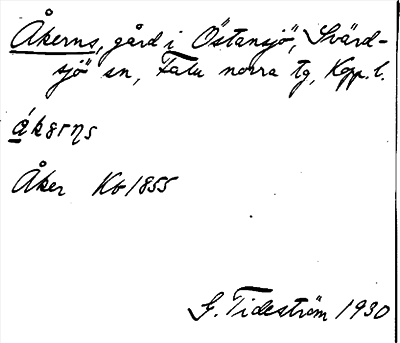 Åkerns, gård i Östansjö, Svärd-
sjö sn, Falu norra tg, Kopp. l.
åkerns
Åker Kb 1855
G. Tideström 1930